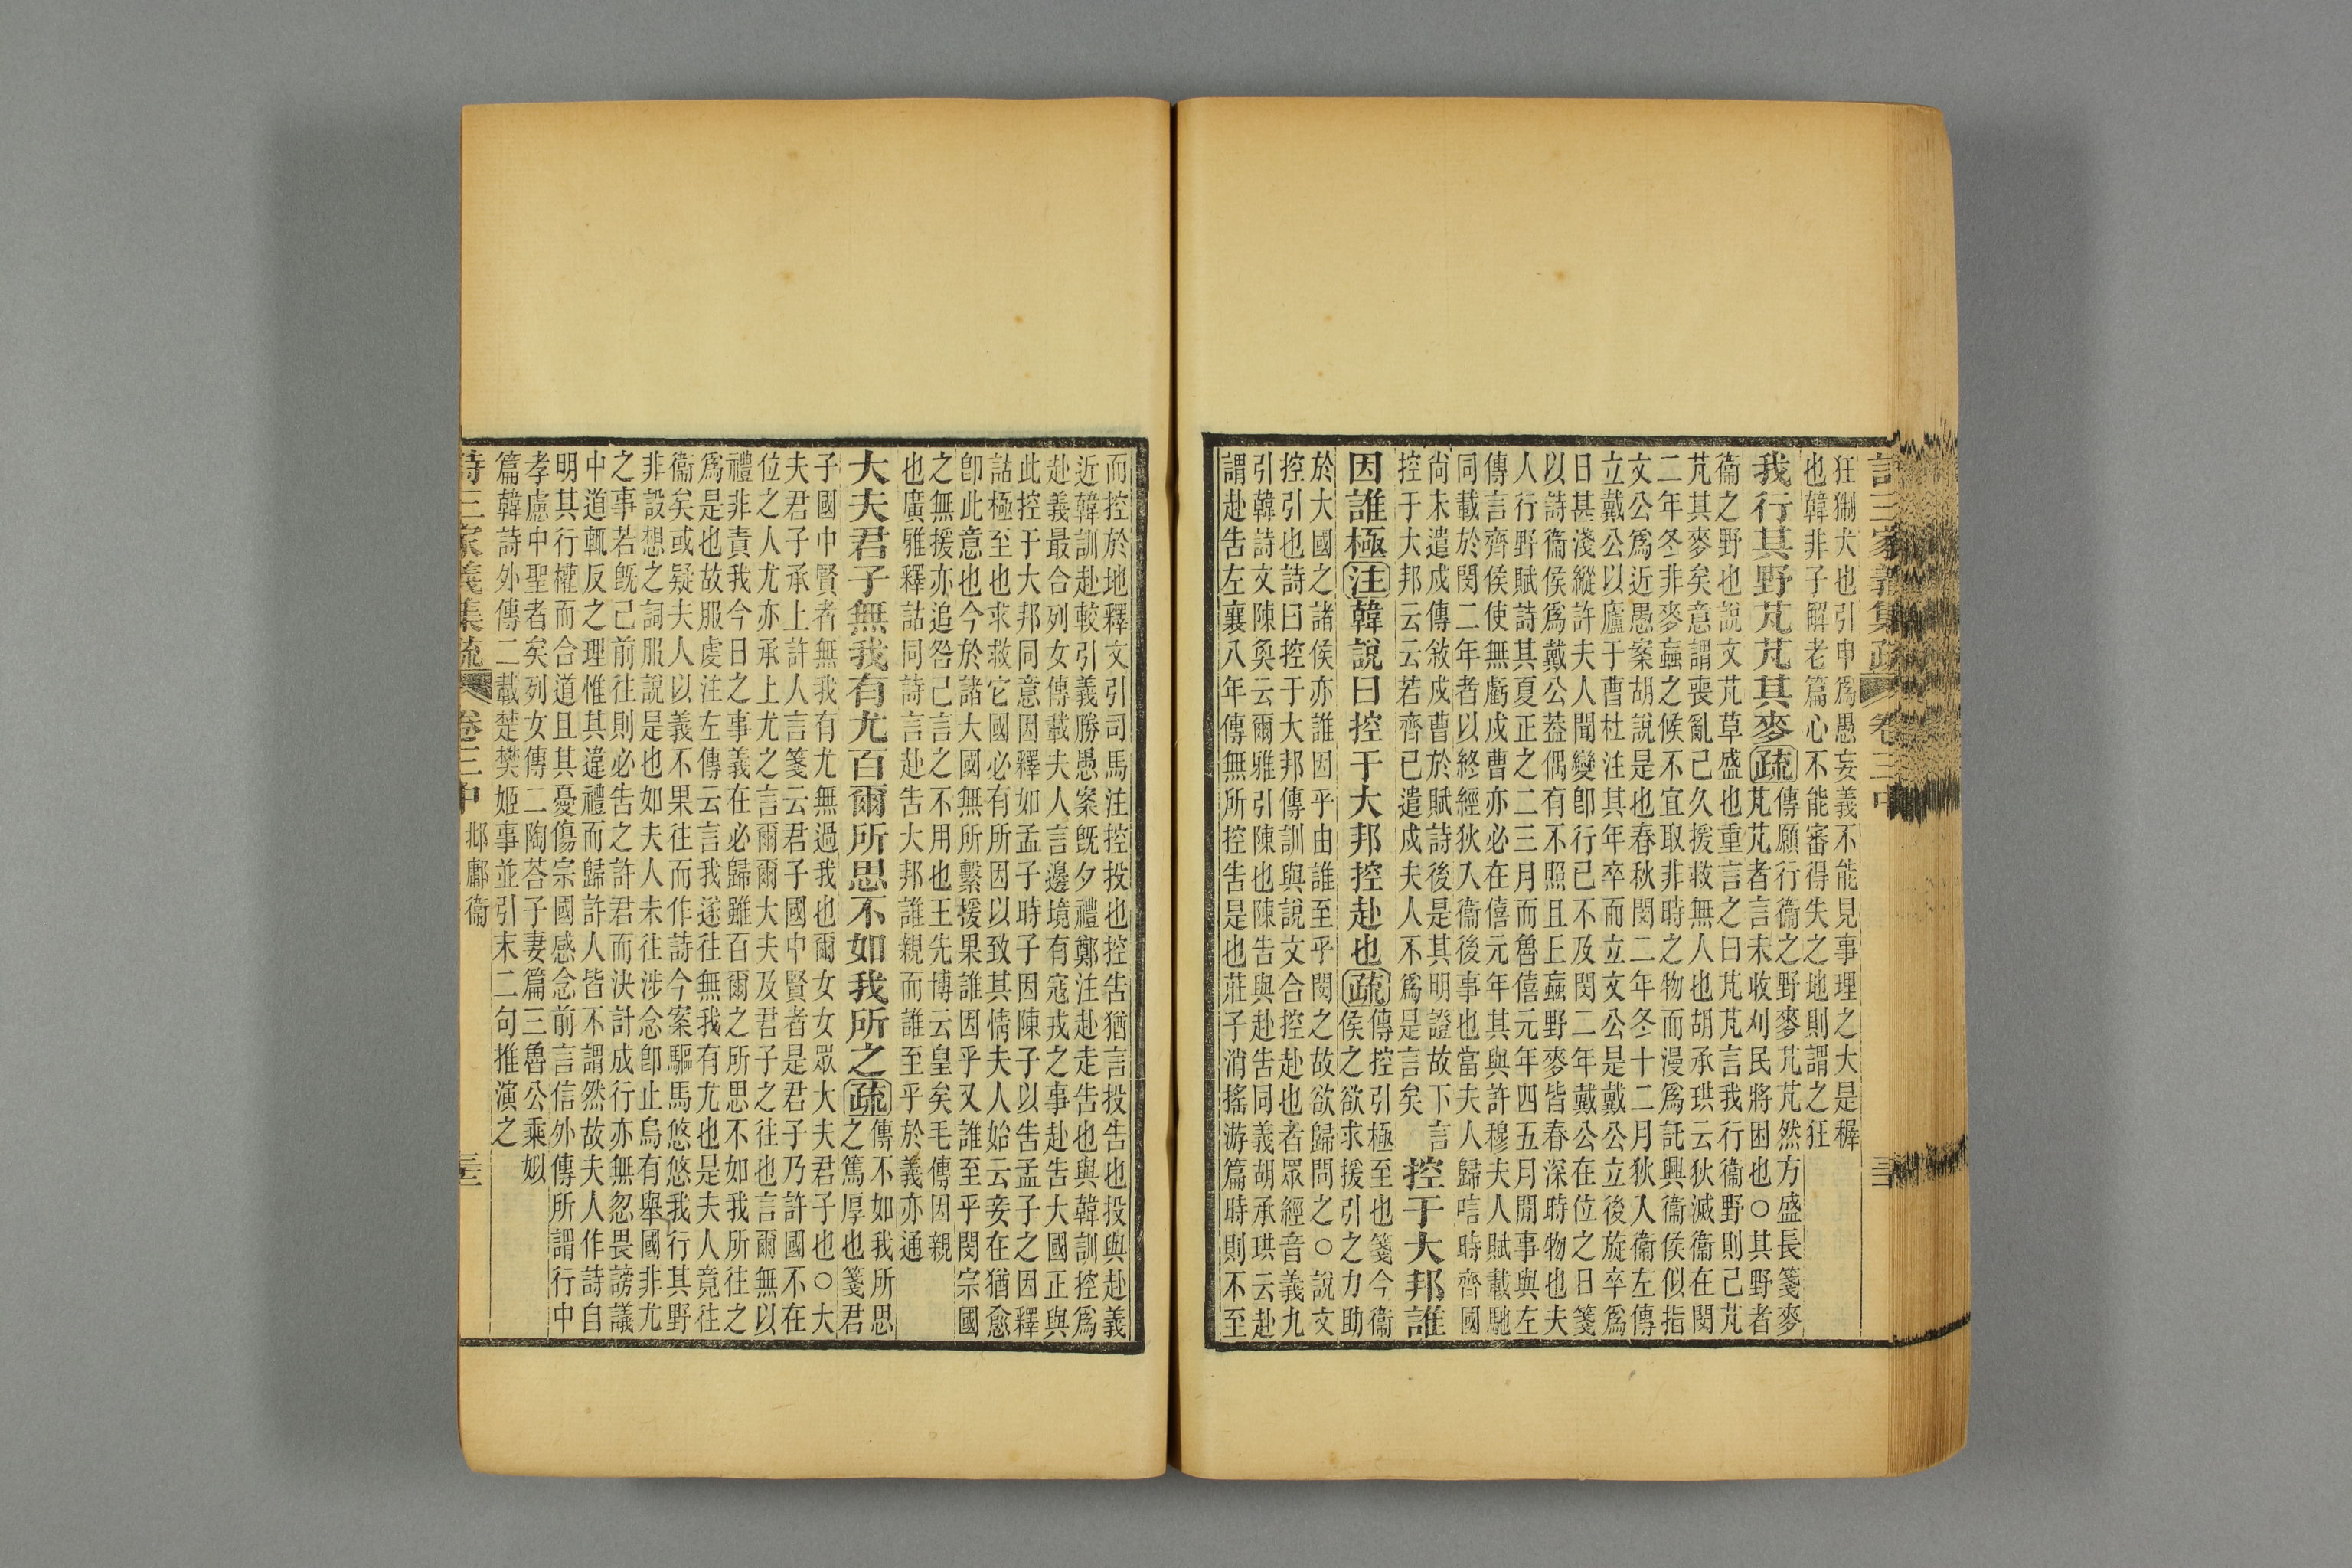 詩三家義集疏 卷三中
狂猘犬也引申爲愚妄義不能見事理之大是穉
也韓非子解老篇心不能審得失之地則謂之狂
我行其野芃芃其麥疏傳願行衞之野麥芃芃然方盛長箋麥
芃芃者言未收刈民將困也○其野者
衞之野也說文芃草盛也重言之曰芃芃言我行衞野則己芃
芃其麥矣意謂喪亂己久援救無人也胡承珙云狄滅衞在閔
二年冬非麥蝱之候不宜取非時之物而漫爲託興衞侯似指
文公爲近愚案胡說是也春秋閔二年冬十二月狄人衞左傳
立戴公以廬于曹杜注其年卒而立文公是戴公立後旋卒爲
日甚淺縱許夫人聞變卽行已不及閔二年戴公在位之日箋
以詩衞侯爲戴公葢偶有不照且丘蝱野麥皆春深時物也夫
人行野賦詩其夏正之二三月而魯僖元年四五月閒事與左
傳言齊侯使無虧戍曹亦必在僖元年其與許穆夫人賦載馳
同載於閔二年者以終經狄入衞後事也當夫人歸唁時齊國
尚未遣戍傳敘戍曹於賦詩後是其明證故下言
控于大邦云云若齊己遣戍夫人不爲是言矣
控于大邦誰
因誰極注韓說曰控于大邦控赴也疏傳控引極至也箋今衞
侯之欲求援引之力助
於大國之諸侯亦誰因乎由誰至乎閔之故欲歸問之○說文
控引也詩曰控于大邦傳訓與說文合控赴也者眾經音義九
引韓詩文陳奐云爾雅引陳也陳告與赴告同義胡承珙云赴
謂赴告左襄八年傳無所控告是也莊子消搖游篇時則不至
而控於地釋文引司馬注控投也控告猶言投告也投與赴義
近韓訓赴較引義勝愚案旣夕禮鄭注赴走告也與韓訓控爲
赴義最合列女傳載夫人言邊境有寇戎之事赴告大國正與
此控于大邦同意因釋如孟子時子因陳子以告孟子之因釋
詁極至也求救它國必有所因以致其情夫人始云妾在猶愈
卽此意也今於諸大國無所繫援果誰因乎又誰至乎閔宗國
之無援亦追咎己言之不用也王先博云皇矣毛傳因親
也廣雅釋詁同詩言赴告大邦誰親而誰至乎於義亦通
大夫君子無我有尤百爾所思不如我所之疏傳不如我所思
之篤厚也箋君
子國中賢者無我有尤無過我也爾女女眾大夫君子也○大
夫君子承上許人言箋云君子國中賢者是君子乃許國不在
位之人尤亦承上尤之言爾爾大夫及君子之往也言爾無以
禮非責我今日之事義在必歸雖百爾之所思不如我所往之
爲是也故服虔注左傳云言我遂往無我有尤也是夫人竟往
衞矣或疑夫人以義不果往而作詩今案驅馬悠悠我行其野
非設想之詞服說是也如夫人未往涉念卽止烏有舉國非尤
之事若旣己前往則必告之許君而決計成行亦無忽畏謗議
中道輒反之理惟其違禮而歸許人皆不謂然故夫人作詩自
明其行權而合道且其憂傷宗國感念前言信外傳所謂行中
孝慮中聖者矣列女傳二陶荅子妻篇三魯公乘姒
篇韓詩外傳二載楚樊姬事並引末二句推演之
詩三家義集疏 卷三中 邶鄘衞